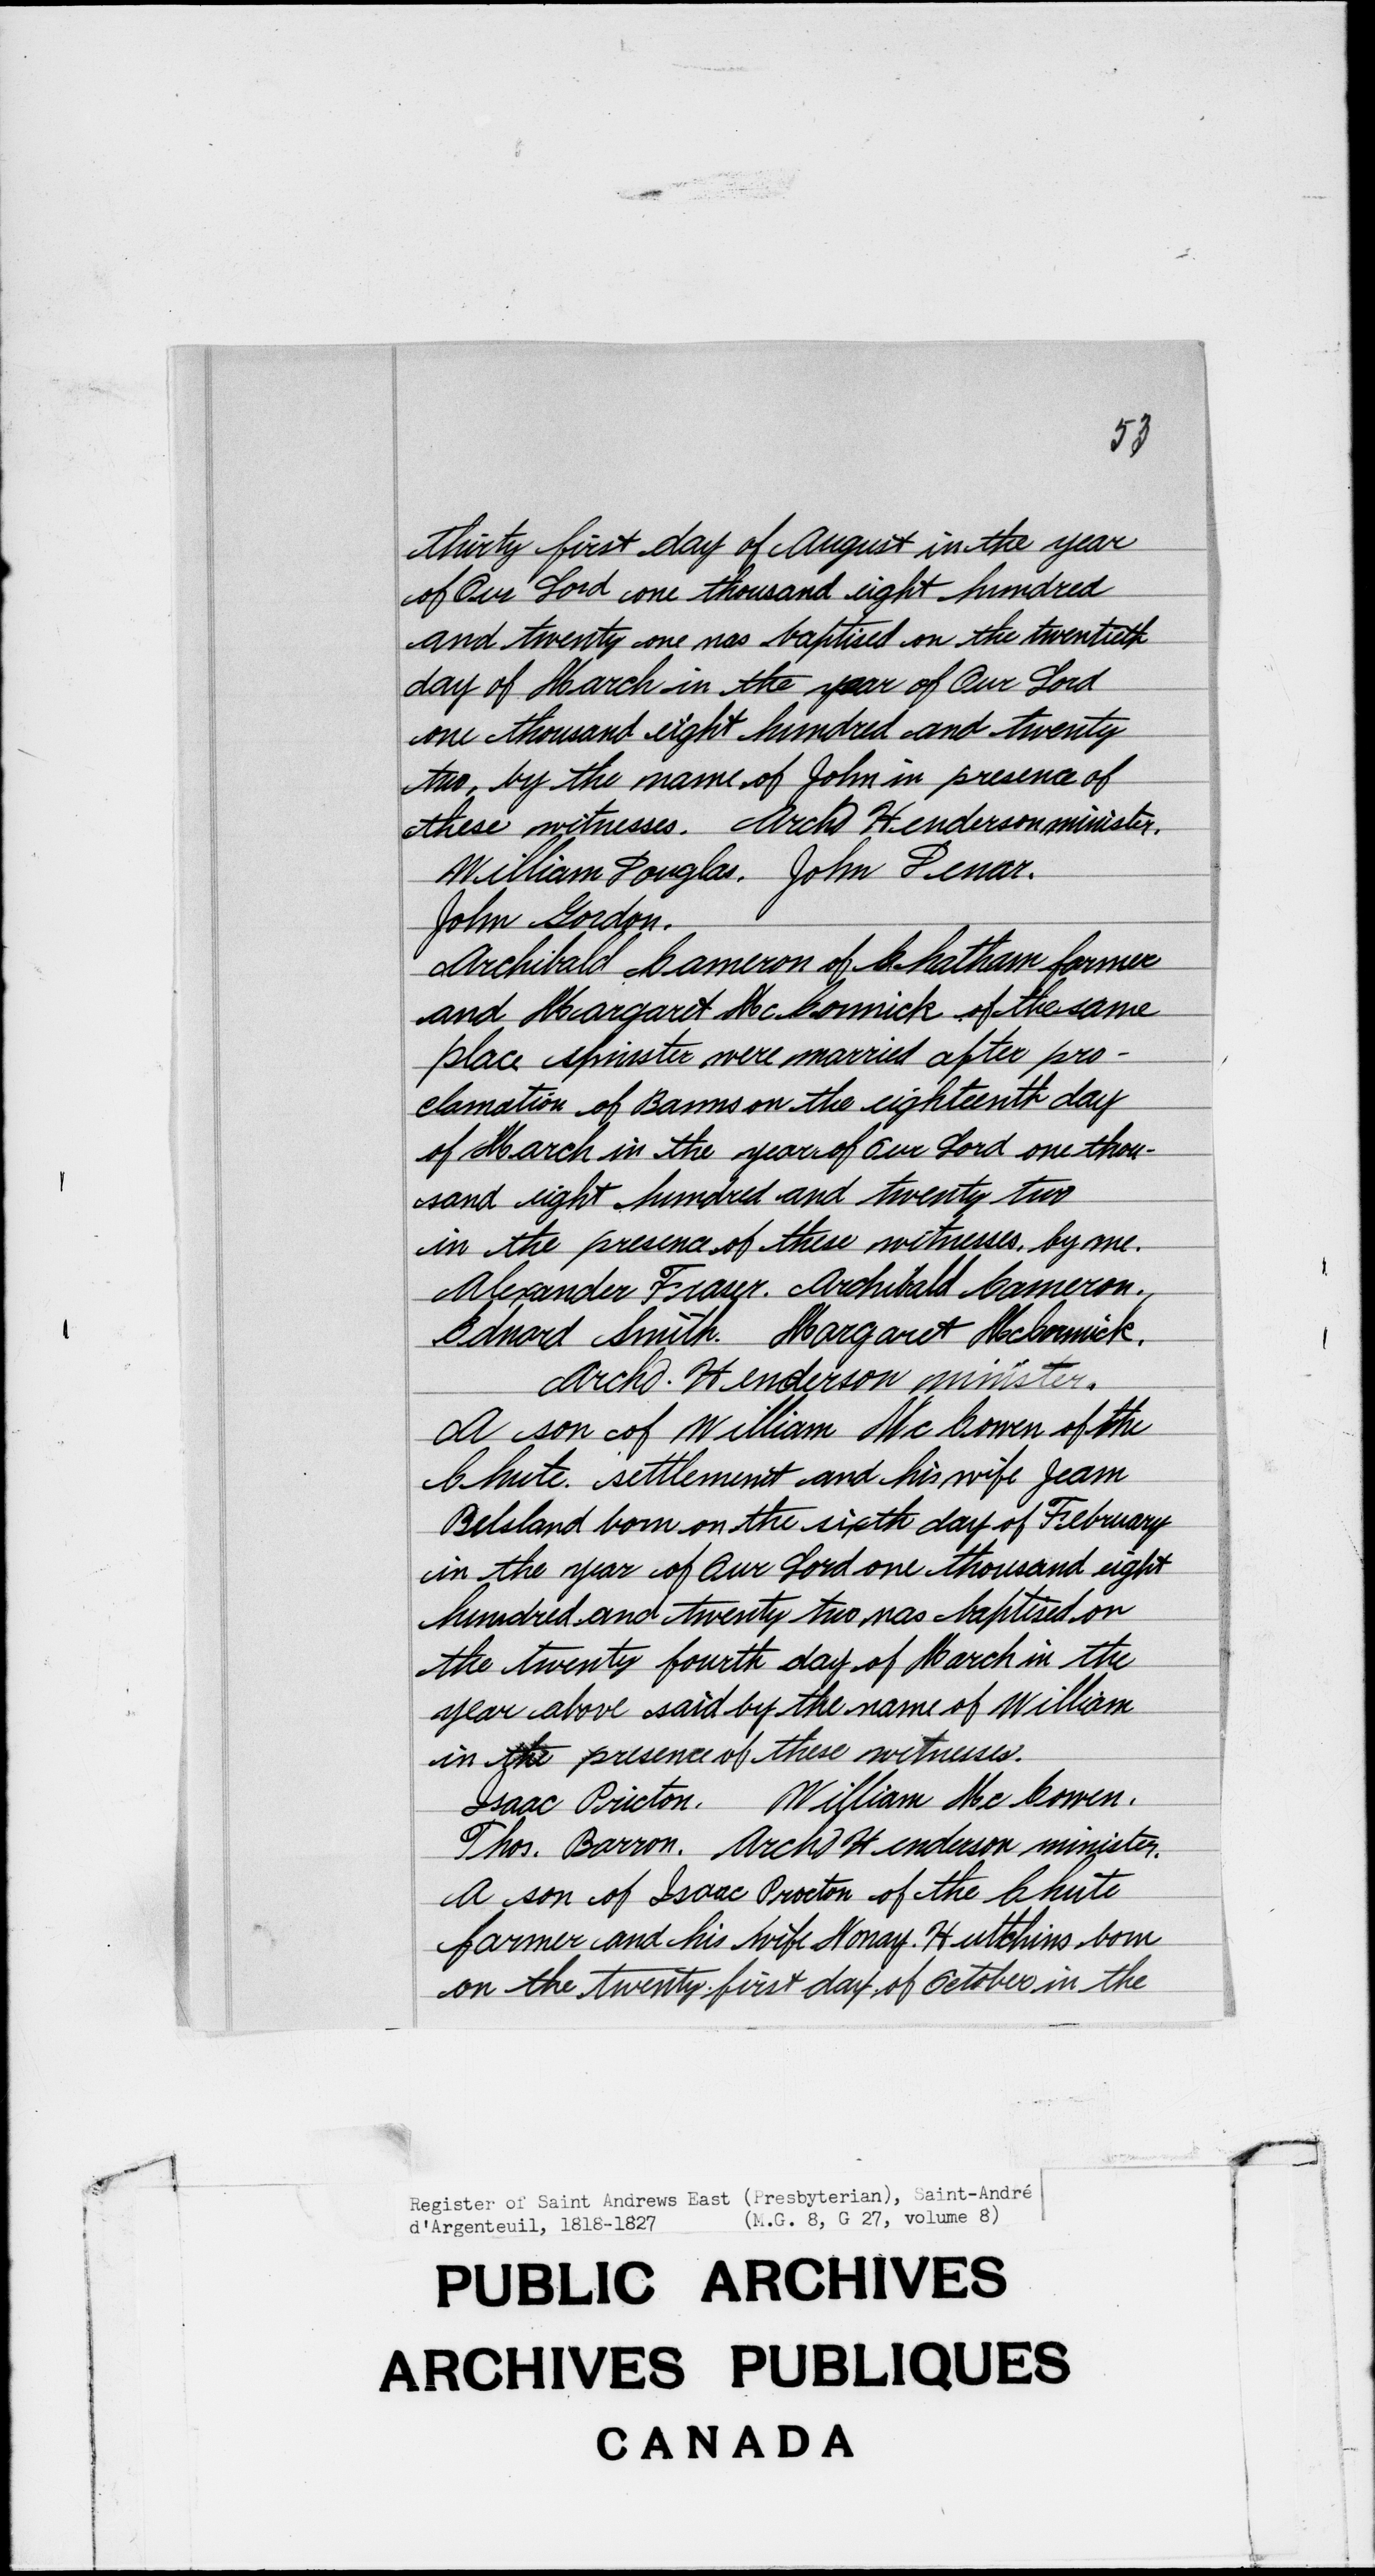 53
thirty first day of August in the year
of Our Lord one thousand eight hundred
and twenty one was baptised on the twentieth
day of March in the year of Our Lord
one thousand eight hundred and twenty
two, by the name of John in presence of
these witnesses. Archd Henderson minister.
William Douglas. John Penar.
John Gordon.
Archibald Cameron of Chatham farmer
and Margaret McCormick of the same
place spinster were married after pro-
clamation of Banns on the eighteenth day
of March in the year of Our Lord one thou-
sand eight hundred and twenty two
in the presence of these witnesses. by me.
Alexander Fraser. Archibald Cameron.
Edward Smith. Margaret McCormick.
Archd. Henderson minister.
A son of William McCowen of the
Chute. settlement and his wife Jean
Belsland born on the sixth day of February
in the year of Our Lord one thousand eight
hundred and twenty two was baptised on
the twenty fourth day of March in the
year above said by the name of William
in the presence of these witnesses.
Isaac Pricton. William McCowen.
Thos. Barron. Archd Henderson minister.
A son of Isaac Procton of the Chute
farmer and his wife Nonay. Hutchins born
on the twenty first day of October in the
Register of Saint Andrews East (Presbyterian), Saint-André
d'Argenteuil, 1818-1827 (M.G. 8, G 27, volume 8)
PUBLIC ARCHIVES
ARCHIVES PUBLIQUES
CANADA